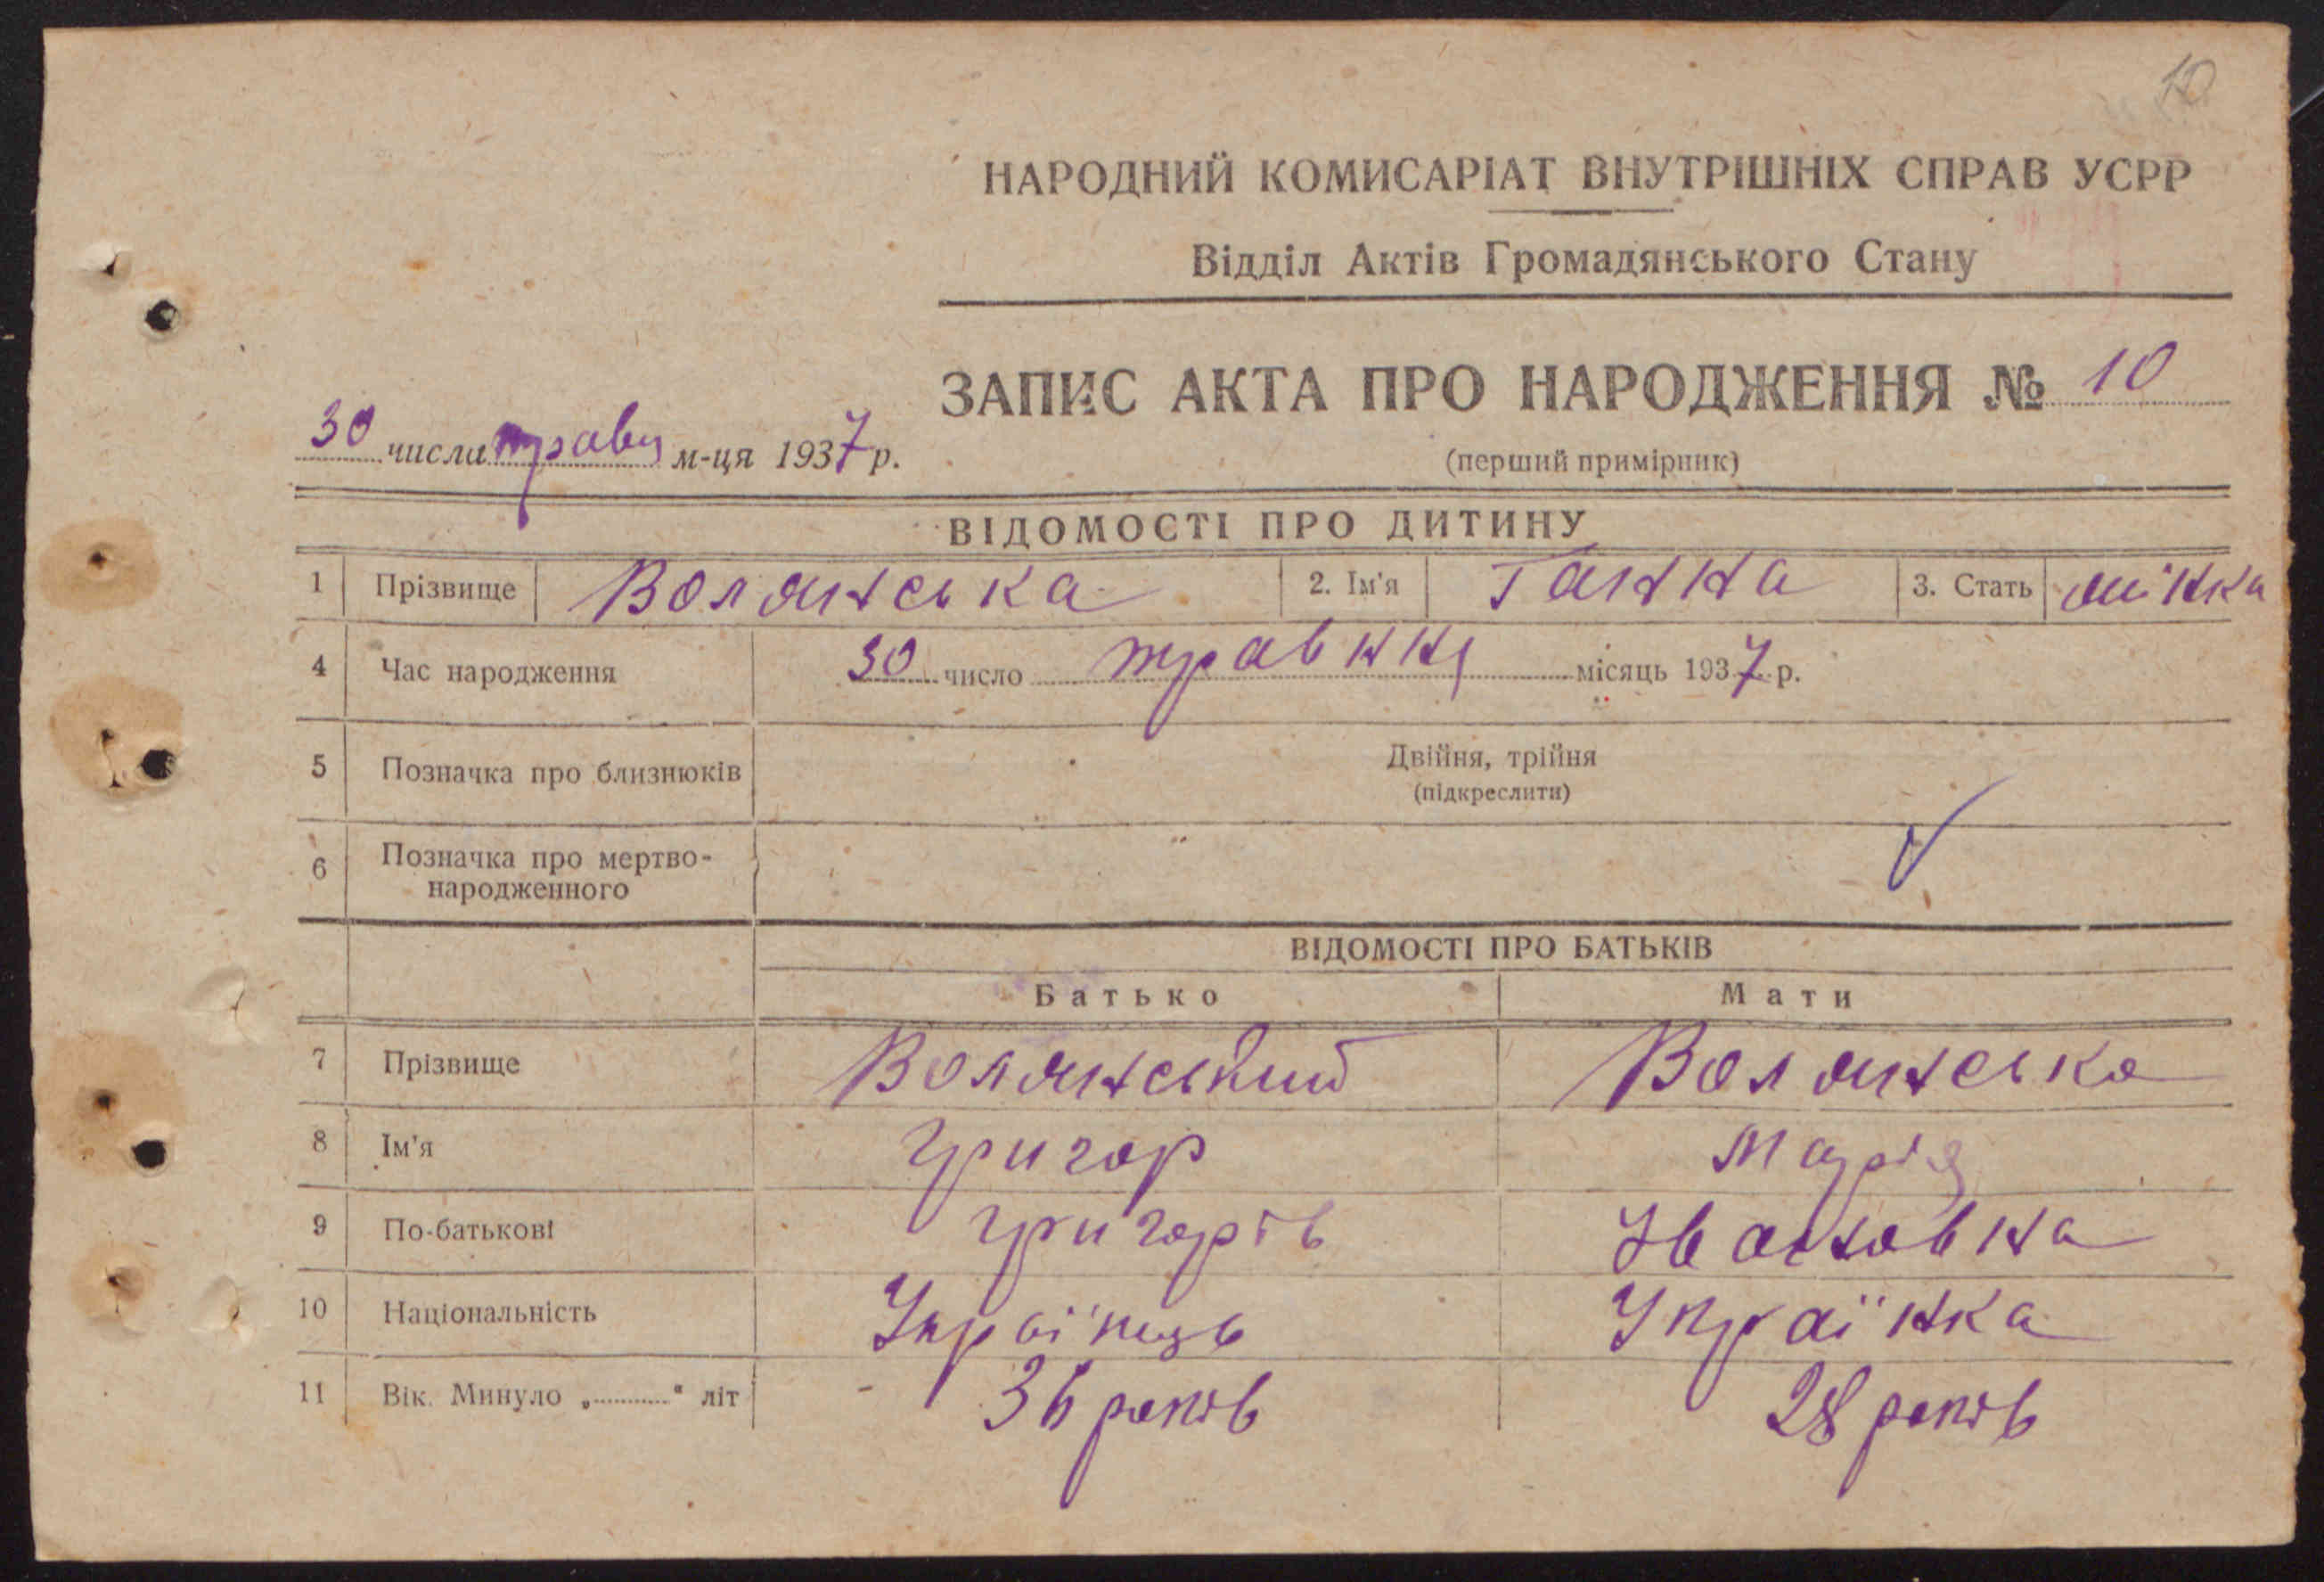 10
НАРОДНИЙ КОМИСАРІАТ ВНУТРІШНІХ СПРАВ УСРР
Відділ Актів Громадянського Стану
ЗАПИС АКТА ПРО НАРОДЖЕННЯ № 10
30 числа травн м-ця 1937 р.
(перший примірник)
ВІДОМОСТІ ПРО ДИТИНУ
1 Прізвище Волянська 2. Ім'я Ганна 3. Стать жінка
4 Час народження 30 число травня місяць 1937 р.
5 Позначка про близнюків Двійня, трійня
(підкреслити)
6 Позначка про мертво-
народженного
ВІДОМОСТІ ПРО БАТЬКІВ
Батько Мати
7 Прізвище Волянський Волянська
8 Ім'я Григор Марія
9 По-батькові Григорів Івановна
10 Національність Украінець Украінка
11 Вік. Минуло „..........“ літ 36 років 28 років